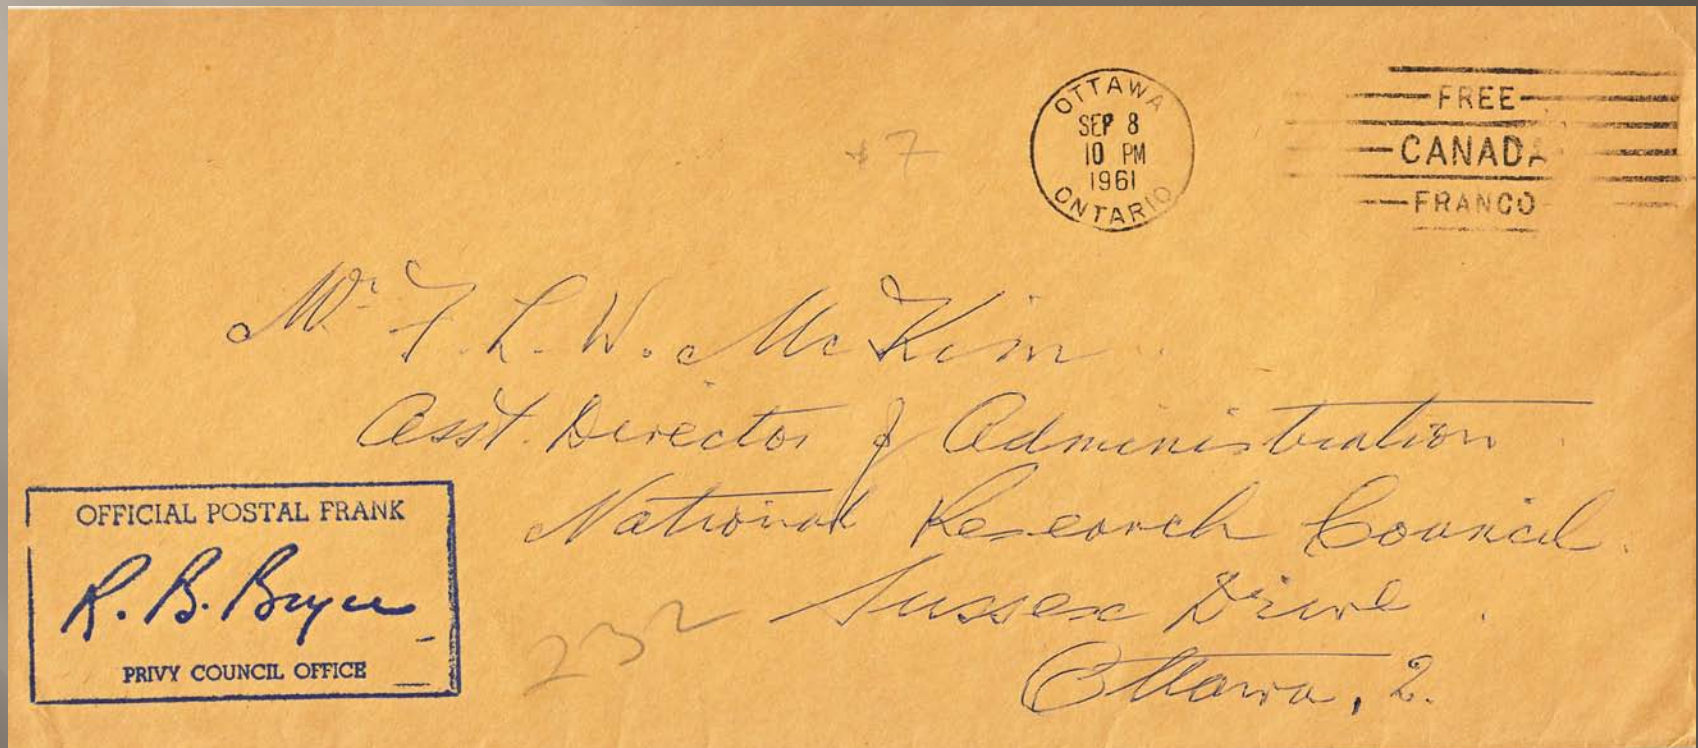 OTTAWA
SEP 8
10 PM
1961
ONTARIO
FREE
CANADA
FRANCO
$7
Mr F. L. W. McKim
Asst. Director of Administration
National Research Council.
Sussex Drive.
Ottawa, 2.
232
OFFICIAL POSTAL FRANK
R. B. Bryce
PRIVY COUNCIL OFFICE